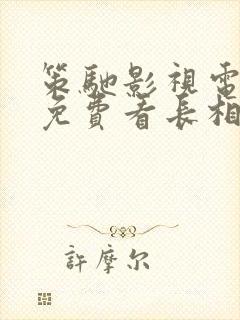 策馳影視電
免費看長相
許摩尔